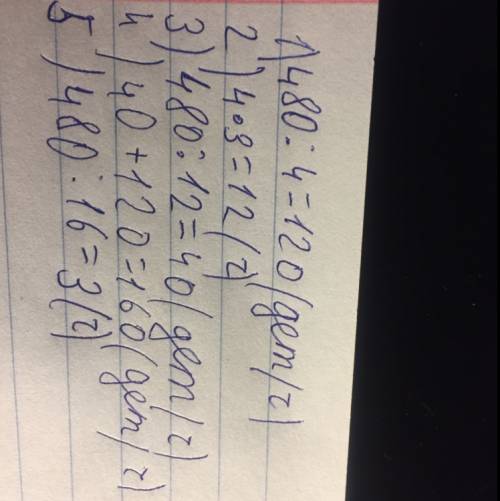 1) 480 : 4 = 120 (дет/ч)
2) 4 · 3 = 12 (ч)
3) 480 : 12 = 40 (дет/ч)
4) 40 + 120 = 160 (дет/ч)
5) 480 : 16 = 3 (ч)